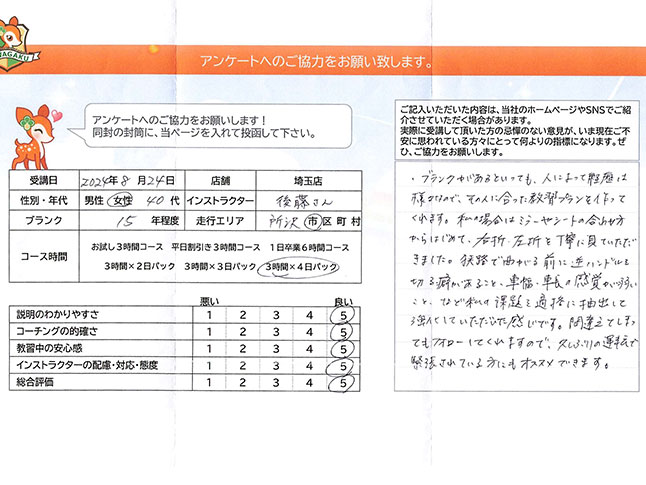 NAGAKU
アンケートへのご協力をお願い致します。
アンケートへのご協力をお願いします！
同封の封筒に、当ページを入れて投函して下さい。
ご記入いただいた内容は、当社のホームページやSNSでご紹
介させていただく場合があります。
実際に受講して頂いた方の忌憚のない意見が、いま現在ご不
安に思われている方々にとって何よりの指標になります。ぜ
ひ、ご協力をお願いします。
受講日 2024年 8 月 24日 店舗 埼玉店
性別・年代 男性 女性 40 代 インストラクター 後藤さん
ブランク 15 年程度 走行エリア 所沢 市 区 町 村
コース時間
お試し3時間コース 平日割引き3時間コース 1日卒業6時間コース
3時間×2日パック 3時間×3日パック 3時間×4日パック
悪い 良い
説明のわかりやすさ 1 2 3 4 5
コーチングの的確さ 1 2 3 4 5
教習中の安心感 1 2 3 4 5
インストラクターの配慮・対応・態度 1 2 3 4 5
総合評価 1 2 3 4 5
・ブランクがあるといっても、人によって経歴は
様々なので、その人に合った教習プランを作って
くれます。私の場合はミラーやシートの合わせ方
からはじめて、右折・左折を丁寧に見ていただ
きました。狭路で曲がる前に逆ハンドルを
切る癖があること、車幅・車長の感覚が弱い
こと、など私の課題を適格に抽出して
強化していただいた感じです。間違えてしまっ
てもフォローしてくれますので、久しぶりの運転で
緊張されている方にもオススメできます。